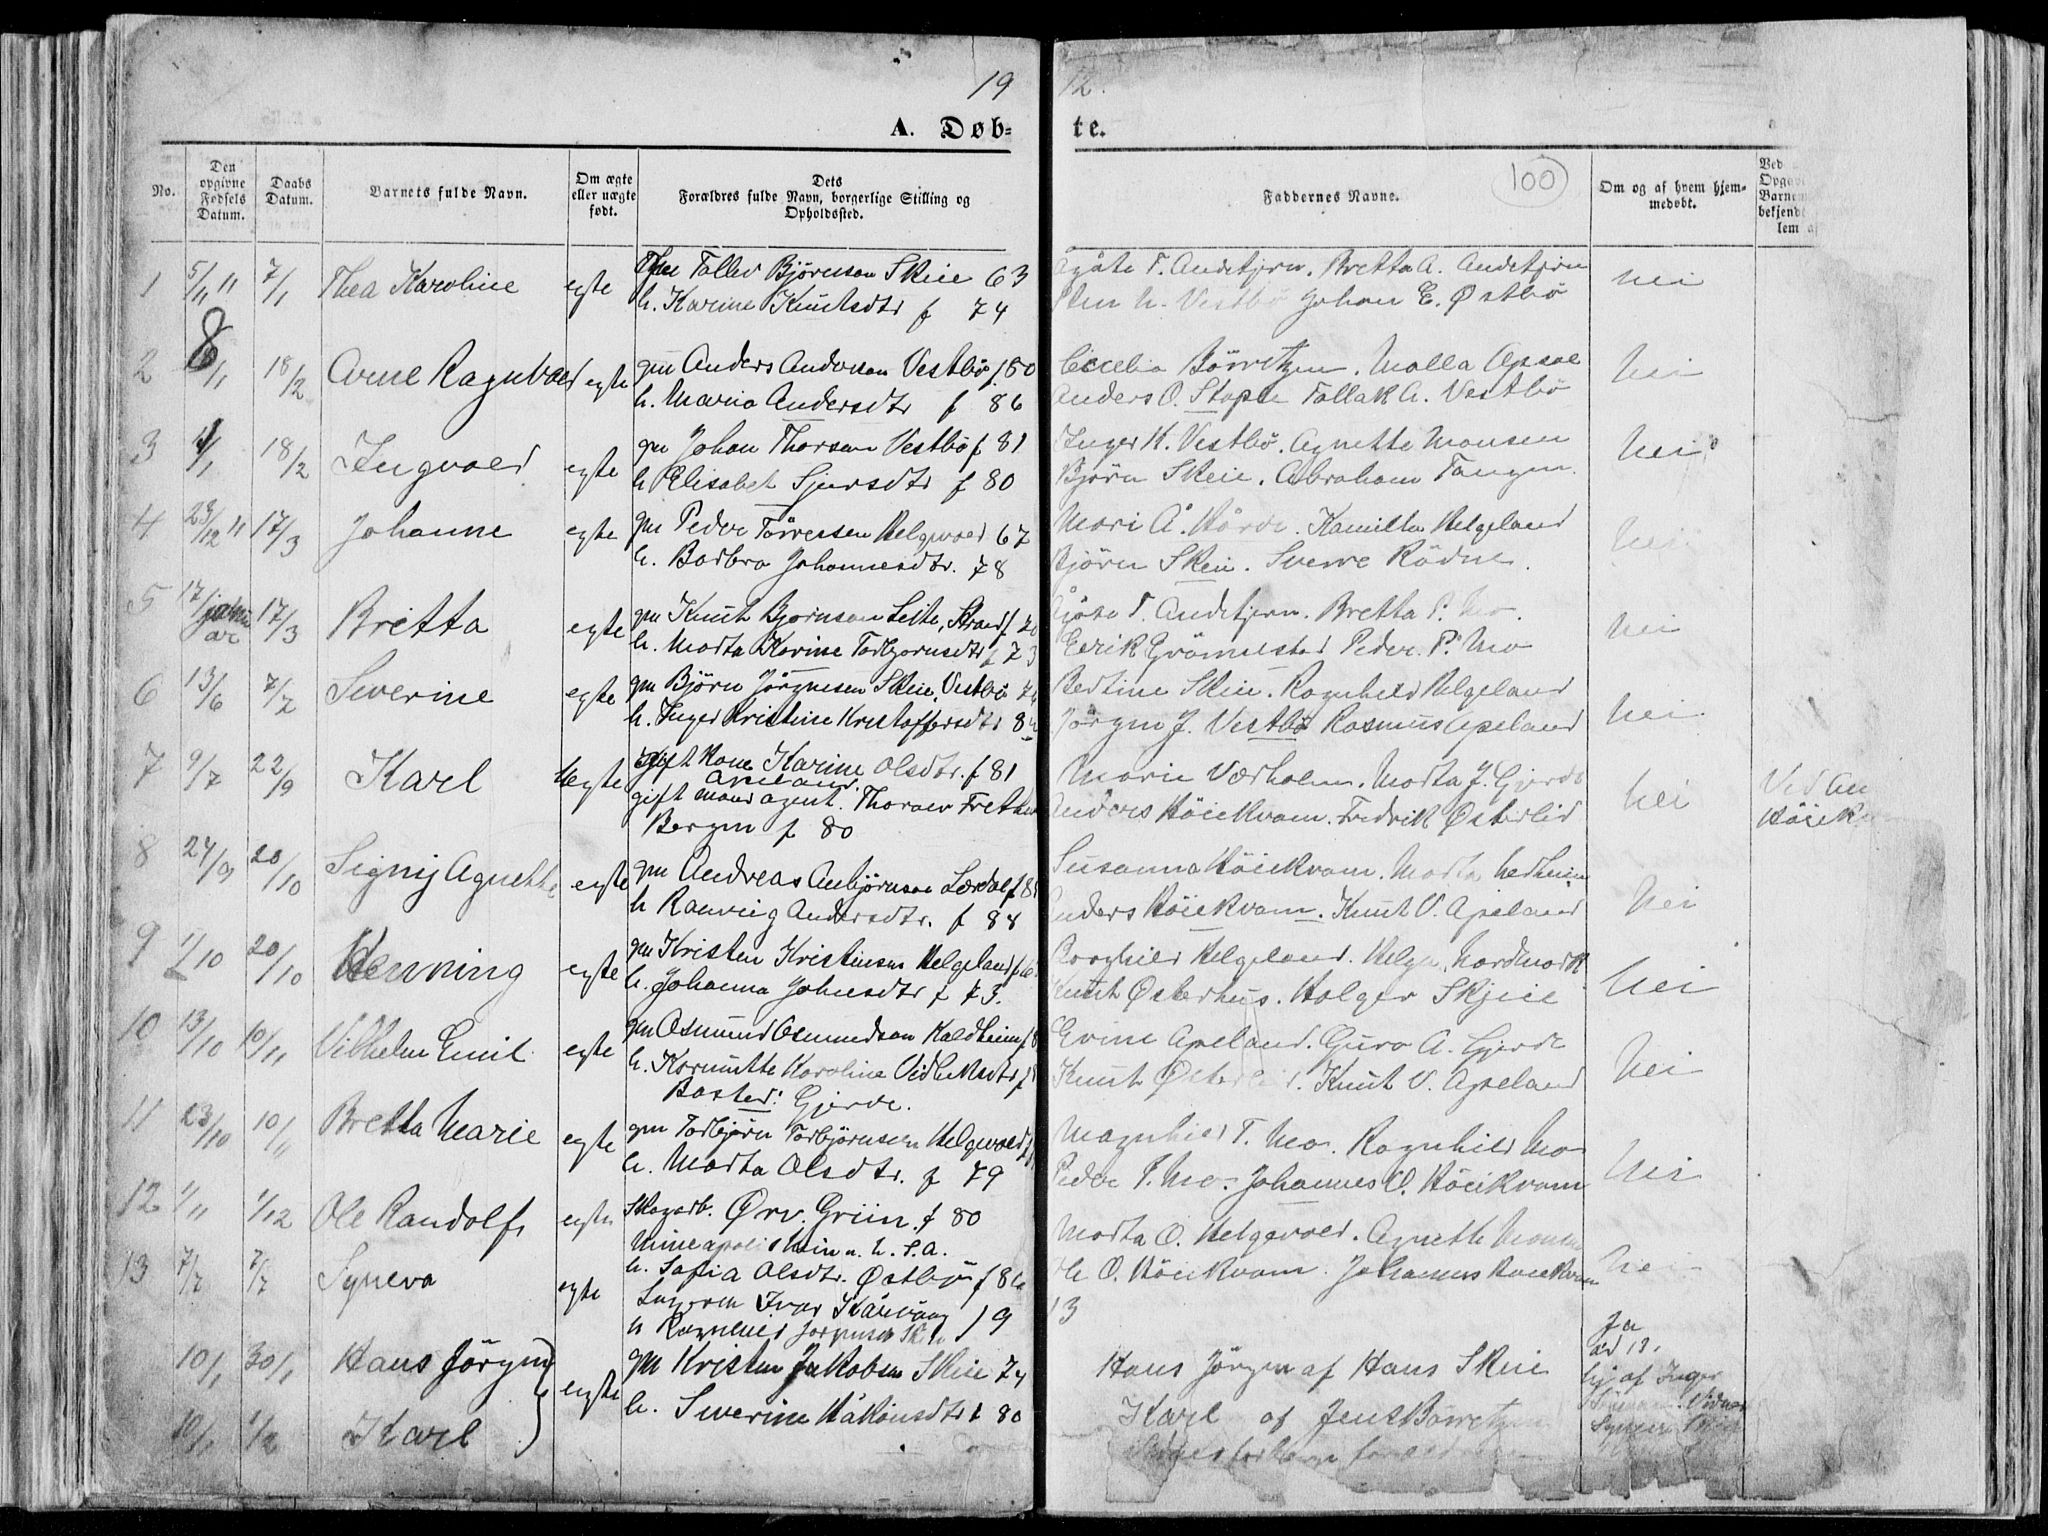 19 12.
A. Døb-
te.
100
No.
Den opgivne Fødsels Datum.
Daabs Datum.
Barnets fulde Navn.
Om ægte eller uægte født.
Dets Forældres fulde Navn, borgerlige Stilling og Opholdssted.
Faddernes Navne.
Om og af hvem hjem-
medøbt.
Ved
Barne
bekjendt
lem
1 5/11 " 7/1 Thea Karoline egte Tollev Björnson Skeie 63
h. Karine Knutsdtr f 74
T. Andstjern. Bretta A. Andstjern
Vestbö Johan E. Østbö
nei
2 8/1 18/2 Arne Ragnvald egte gm Anders Anderson Vestbö f. 80
h. Maria Andersdtr f 86
Börretzen. Malla
Anders O. Stople Tallak A. Vestbö
nei
3 4/1 18/2 Ingvald egte gm Johan Thorsen Vestbö f 81
h Elisabet Sjursdtr f 80
Inger K. Vestbö. Agnette Monsen
Björn Skeie. Abraham Tangen.
nei
4 23/12 " 17/3 Johanne egte gm Peder Törresen Helgevold 67
h. Barbro Johannesdtr. 78
Mari Å. Hårde. Kamilla Helgeland
Björn Skeie. Sverre Rödne.
nei
5 17/ 17/3 Bretta egte gm Knut Bjørnson Leite, Strand f 70
h. Marta Karine Torbjornsdtr f 73
T. Andstjern. Bretta P. Mo.
Eerik Grönnestad Peder P. Mo
nei
6 13/6 7/7 Severine egte gm Björn Jörgensen Skeie, Vestbö
h. Inger Kristine Kristoffersdtr
Bertine Skeie. Ragnhild Helgeland
Jörgen J. Vestbö Rasmus Apeland
nei
7 9/7 22/9 Karl uegte gift Kone Karine Olsdtr. f 81
Apeland.
gift mand agent. Thoralv Frethei
Bergen f 80
Marie Varholm. Marta J. Gjerde
Anders Höiekvam. Fredrik Østerlid
nei
Ved An
Höiek
8 24/9 20/10 Signij Agnethe egte gm Andreas Anbjörnson Lærdal f 8
h Ranveig Andersdtr. f 88
Susanna Höiekvam. Marta
Anders Höiekvam. Knut V. Apeland
nei
9 1/10 20/10 Henning egte gm Kristen Kristensen Helgeland f
h. Johanna Johnsdtr f 73.
Borghild Helgeland. Helga Nordmark
Knut Østerhus. Holger Skjeie
nei
10 13/10 10/11 Vilhelm Emil egte gm Osmund Osmundson Kaldheim f 8
h. Karoline
Bosted: Gjerde.
Evine Apeland. Guro A. Gjerde
Knut Knut V. Apeland
nei
11 23/10 10/11 Bretta Marie egte gm Torbjørn Torbjörnsen Helgevold f
h. Marta Olsdtr. f 79
Magnhild T. Mo. Ragnhild Mo
Peder T. Mo. Johannes O. Höiekvam
nei
12 1/11 1/12 Ole Randolf egte Skogarb. Ørv. Griin. f 80
Mineapolis Minn. U.S.A.
h. Sofia Olsdtr. Østbö f 86
Marta O. Helgevold. Agneth Monsen
Ole O. Höiekvam. Johannes Höiekvam
nei
13 7/7 7/7 Syneva egte Ivar
h Ragnhild Jorgensdtr Skeie
19 13
10/1 30/1 Hans Jörgen egte gm Kristen Jakobsen Skeie 74
h. Severine Håkonsdtr f 80
Hans Jörgen af Hans Skeie
Ja
hj af Inger
10/1 1/2 Karl
Karl af Jens Börretzen